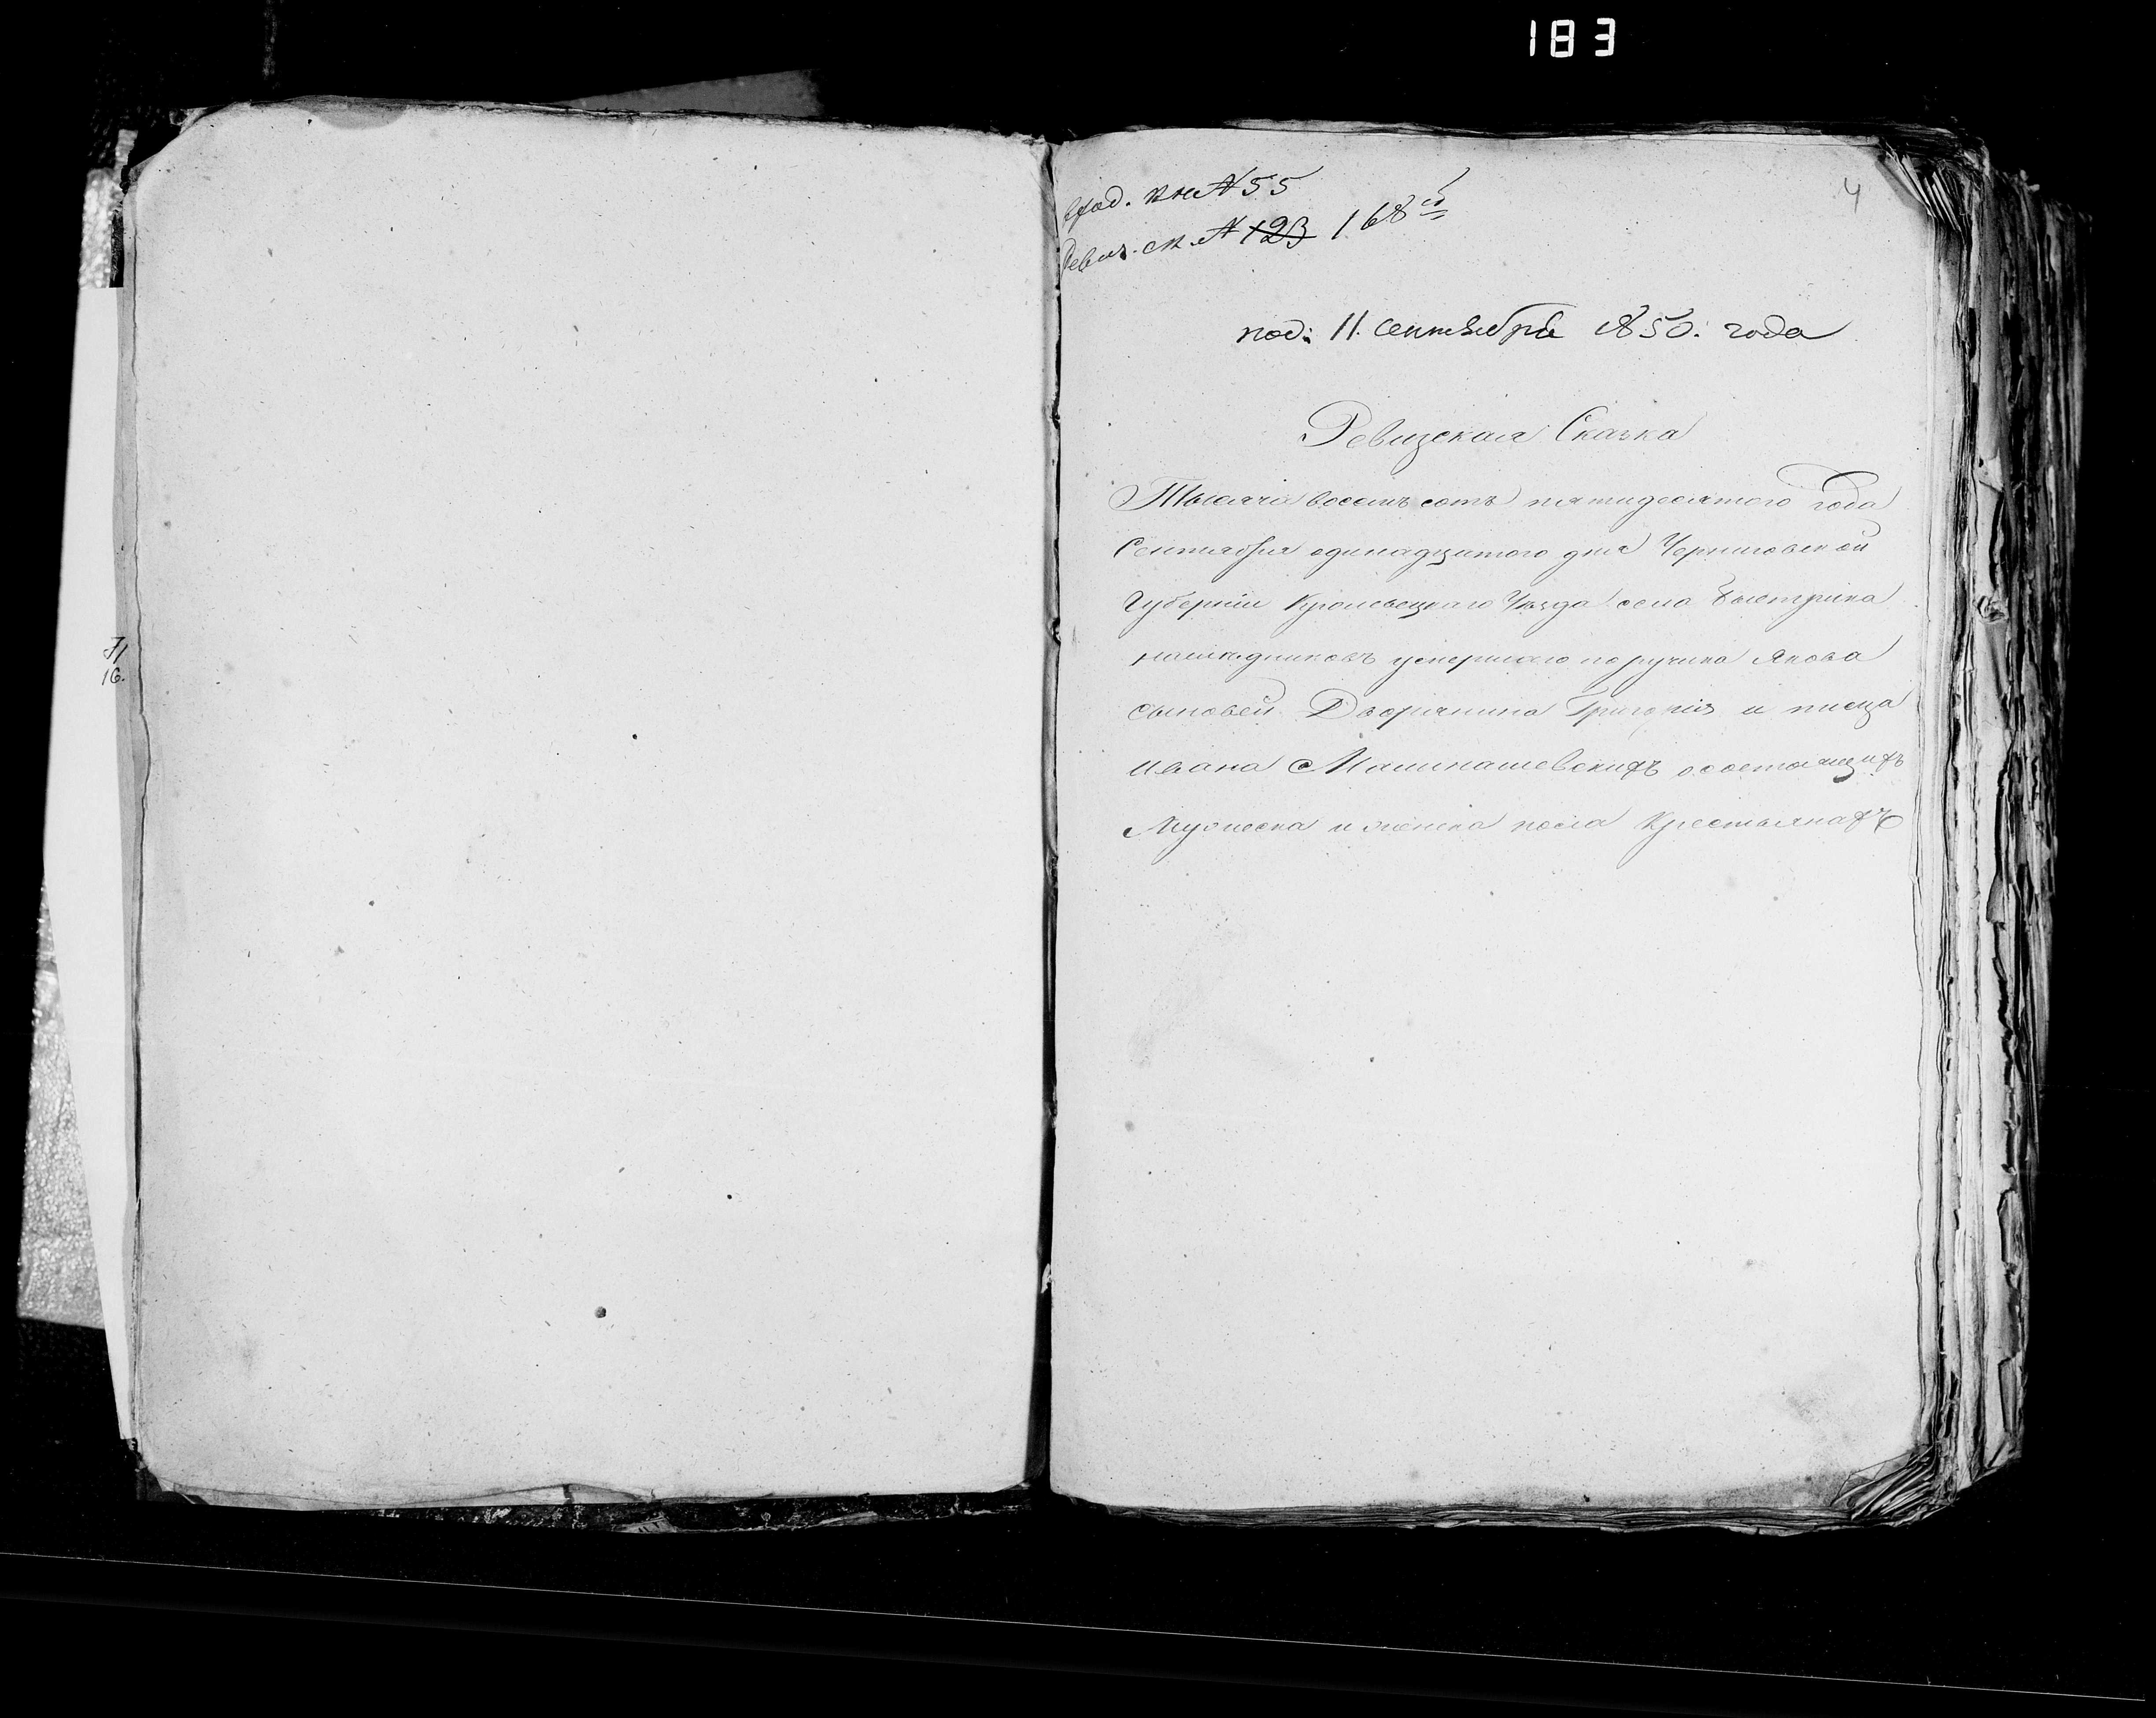 183
4
вход. кн. № 55
Ревиз. ск. № 123 168
под: 11. сентября 1850. года
Ревизская Сказка
Тысяча восемь сотъ пятидесятого года
Сентября одинадцятого дня Черниговской
Губерніи Кролевецкаго Уезда села Быстрика
наследниковъ умершаго поручика Якова
сыновей Дворянина Григорія и писца
Ивана о состоящихъ
Мужеска и женска пола Крестьянахъ
71
16.